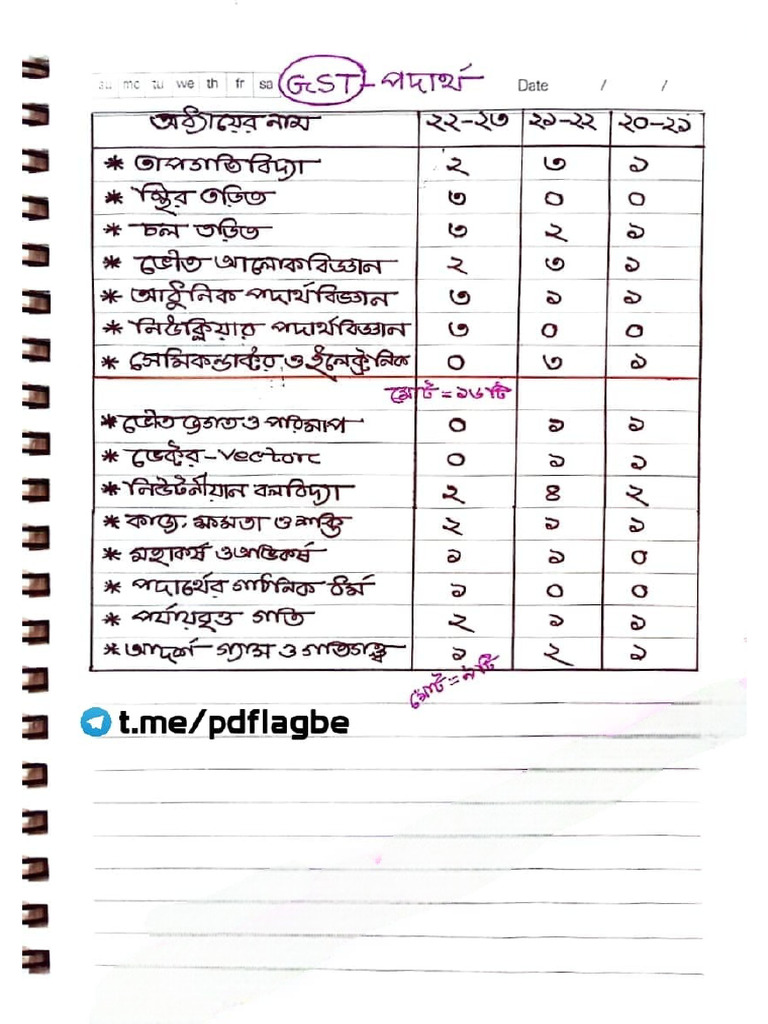 su mc tu we th fr sa GST-পদার্থ Date / /
অধ্যায়ের নাম ২২-২৩ ২১-২২ ২০-২১
* তাপগতিবিদ্যা ২ ৩ ১
* স্থির তড়িত ৩ ০ ০
* চল তড়িত ৩ ২ ১
* ভৌত আলোকবিজ্ঞান ২ ৩ ১
* আধুনিক পদার্থবিজ্ঞান ৩ ১ ১
* নিউক্লিয়ার পদার্থবিজ্ঞান ৩ ০ ০
* সেমিকন্ডাক্টর ও ইলেক্ট্রনিক ০ ৩ ১
মোট = ১৬ টি
* ভৌত জগত ও পরিমাপ ০ ১ ১
* ভেক্টর-Vector ০ ১ ১
* নিউটনীয়ান বলবিদ্যা ২ ৪ ২
* কাজ, ক্ষমতা ও শক্তি ২ ১ ১
* মহাকর্ষ ও অভিকর্ষ ১ ১ ০
* পদার্থের গাঠনিক ধর্ম ১ ০ ০
* পর্যায়বৃত্ত গতি ২ ১ ১
* আদর্শ গ্যাস ও গতিতত্ত্ব ১ ২ ১
মোট = ৯ টি
t.me/pdflagbe